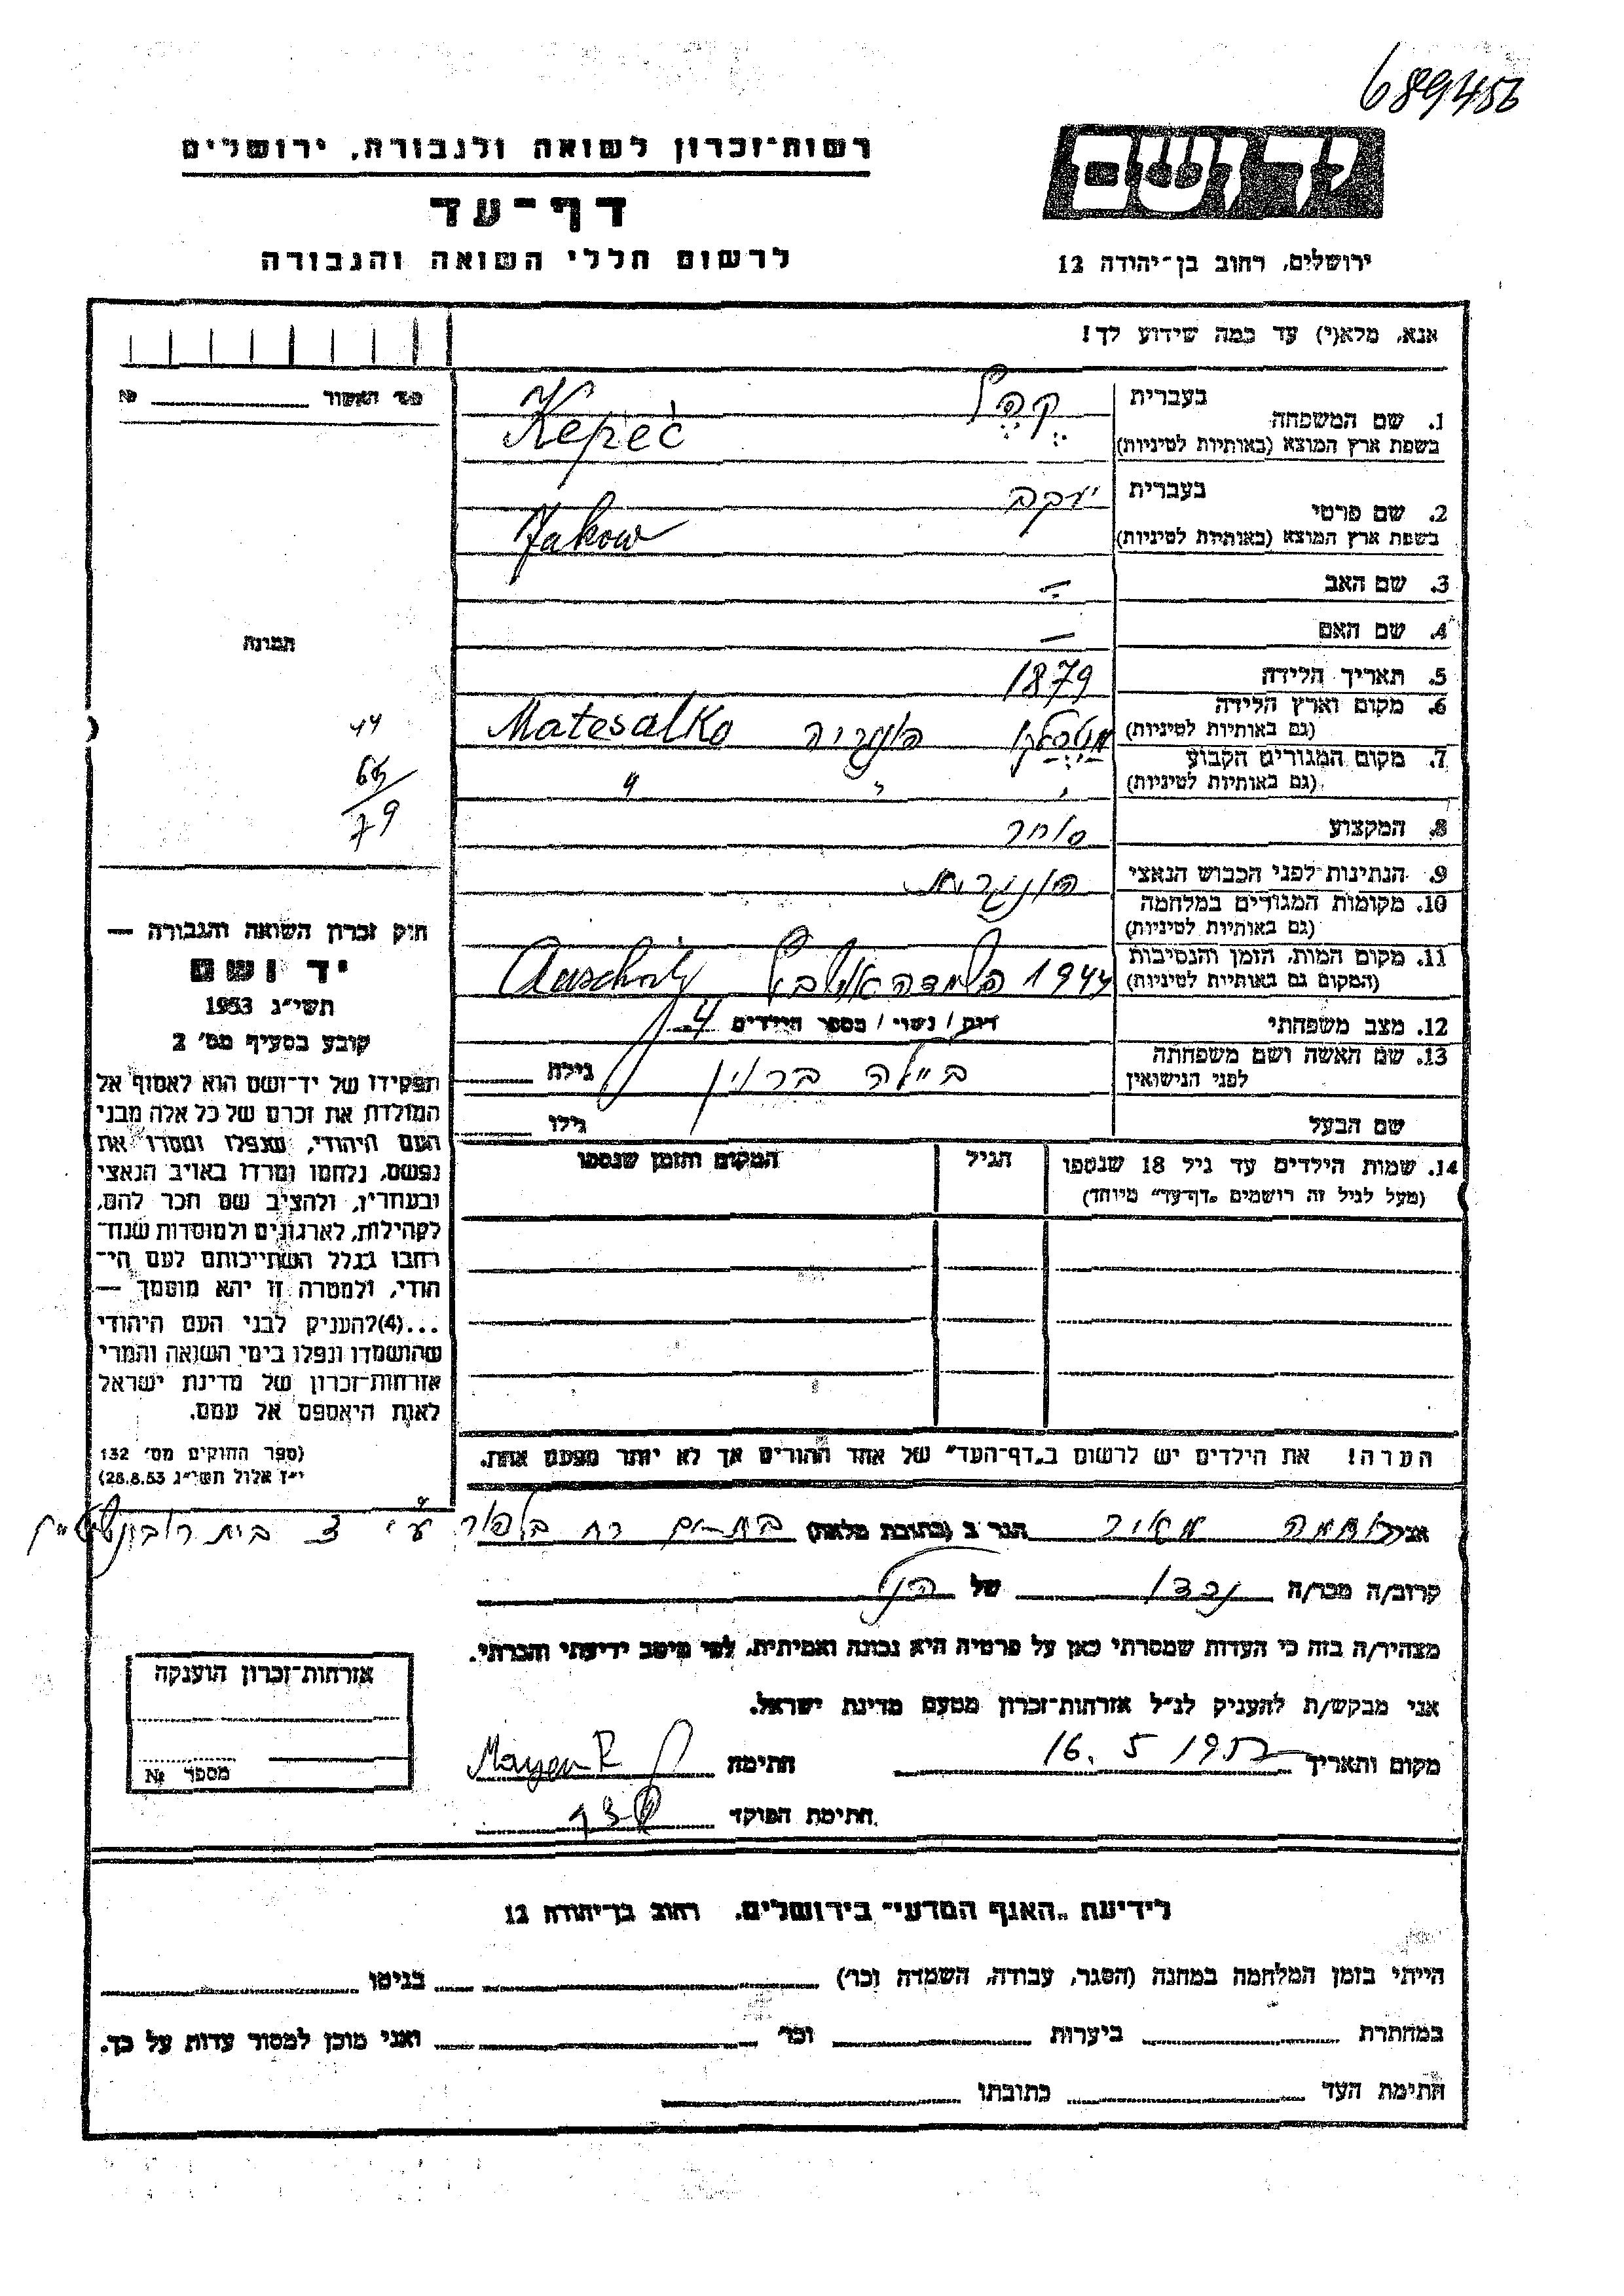 689456
רשות־זכרון לשואה ולגבורה, ירושלים
דף־עד
לרשום חללי השואה והגבורה
יד ושם
ירושלים, רחוב בן־יהודה 12
אנא, מלא(י) עד כמה שידוע לך!
מס׳ האשור № 
תמונה
44
65
79
1. שם המשפחה בעברית
בשפת ארץ המוצא (באותיות לטיניות) Kepeć
2. שם פרטי בעברית יעקב
בשפת ארץ המוצא (באותיות לטיניות) Jakow
3. שם האב —
4. שם האם —
5. תאריך הלידה 1879
6. מקום וארץ הלידה הונגריה Matesalko
(גם באותיות לטיניות)
7. מקום המגורים הקבוע " " "
(גם באותיות לטיניות)
8. המקצוע סוחר
9. הנתינות לפני הכבוש הנאצי הונגרית
10. מקומות המגורים במלחמה
(גם באותיות לטיניות)
11. מקום המות, הזמן והנסיבות 1944
(המקום גם באותיות לטיניות)
12. מצב משפחתי רווק / נשוי / מספר הילדים 4
13. שם האשה ושם משפחתה ביילה ברוין גילה
לפני הנישואין
שם הבעל גילו
14. שמות הילדים עד גיל 18 שנספו הגיל המקום והזמן שנספו
(מעל לגיל זה רושמים „דף־עד״ מיוחד)
הערה! את הילדים יש לרשום ב„דף־העד״ של אחד ההורים אך לא יותר מפעם אחת.
חוק זכרון השואה והגבורה —
יד ושם
תשי״ג 1953
קובע בסעיף מס׳ 2
תפקידו של יד־ושם הוא לאסוף אל
המולדת את זכרם של כל אלה מבני
העם היהודי, שנפלו ומסרו את
נפשם, נלחמו ומרדו באויב הנאצי
ובעוזריו, ולהציב שם וזכר להם,
לקהילות, לארגונים ולמוסדות שנח־
רבו בגלל השתייכותם לעם הי־
הודי, ולמטרה זו יהא מוסמך —
...(4) להעניק לבני העם היהודי
שהושמדו ונפלו בימי השואה והמרי
אזרחות־זכרון של מדינת ישראל
לאות היאספם אל עמם.
(ספר החוקים מס׳ 132
י״ז אלול תשי״ג 28.8.53)
אני מאיר הגר ב (כתובת מלאה) בת־ים רח בלפור ע״י בית רובינשטיין
קרוב/ה מכר/ה נכדו של הנ״ל
מצהיר/ה בזה כי העדות שמסרתי כאן על פרטיה היא נכונה ואמיתית, לפי מיטב ידיעתי והכרתי.
אני מבקש/ת להעניק לנ״ל אזרחות־זכרון מטעם מדינת ישראל.
מקום ותאריך 16. 5 חתימה
חתימת הפוקד
אזרחות־זכרון הוענקה
מספר №
לידיעת „האגף המדעי״ בירושלים, רחוב בן־יהודה 12
הייתי בזמן המלחמה במחנה (הסגר, עבודה, השמדה וכו׳) בגיטו
במחתרת ביערות וכו׳ ואני מוכן למסור עדות על כך.
חתימת העד כתובתו